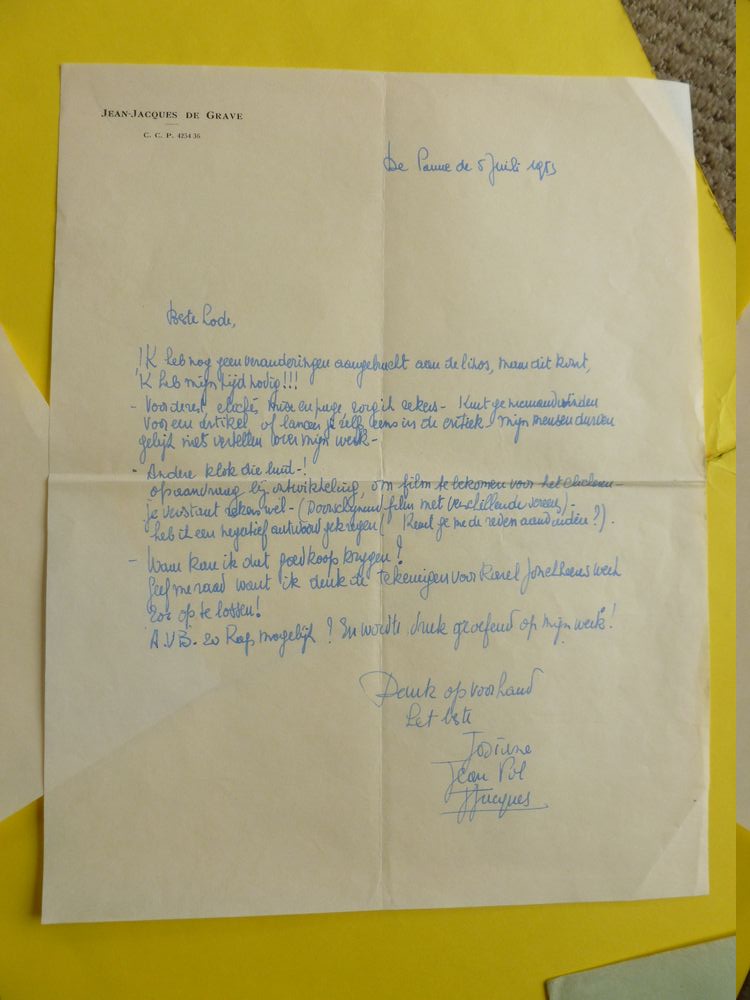 JEAN-JACQUES DE GRAVE
C. C. P. 4254 36
De Panne de 5 Juli 1953
Beste Lode,
'K heb nog geen veranderingen aangebracht aan de linos, maar dit komt,
'K heb mijn tijd nodig!!!
- Voor de rest, clichés, mise en page, zorg ik zeker - Kunt ge niemand vinden
voor een artikel of lanceer je zelf eens in de critiek! mijn mensen durven
gelijk niets vertellen over mijn werk -
- Andere klok die luid -!
op aanvraag bij ontwikkeling, om film te bekomen voor het clicheren -
je verstaat zeker wel - (Doorschijnend film met verschillende screens) -
heb ik een negatief antwoord gekregen ( Kunt ge me de reden aanduiden?).
- Waar kan ik dat goedkoop krijgen?
Geef me raad want ik denk de tekeningen voor Karel Jonckheere werk
zoo op te lossen!
A.V.B. zo Rap mogelijk? En wordt druk geoefend op mijn werk!
Dank op voorhand
Het beste
Josiane
Jean Pol
JJacques